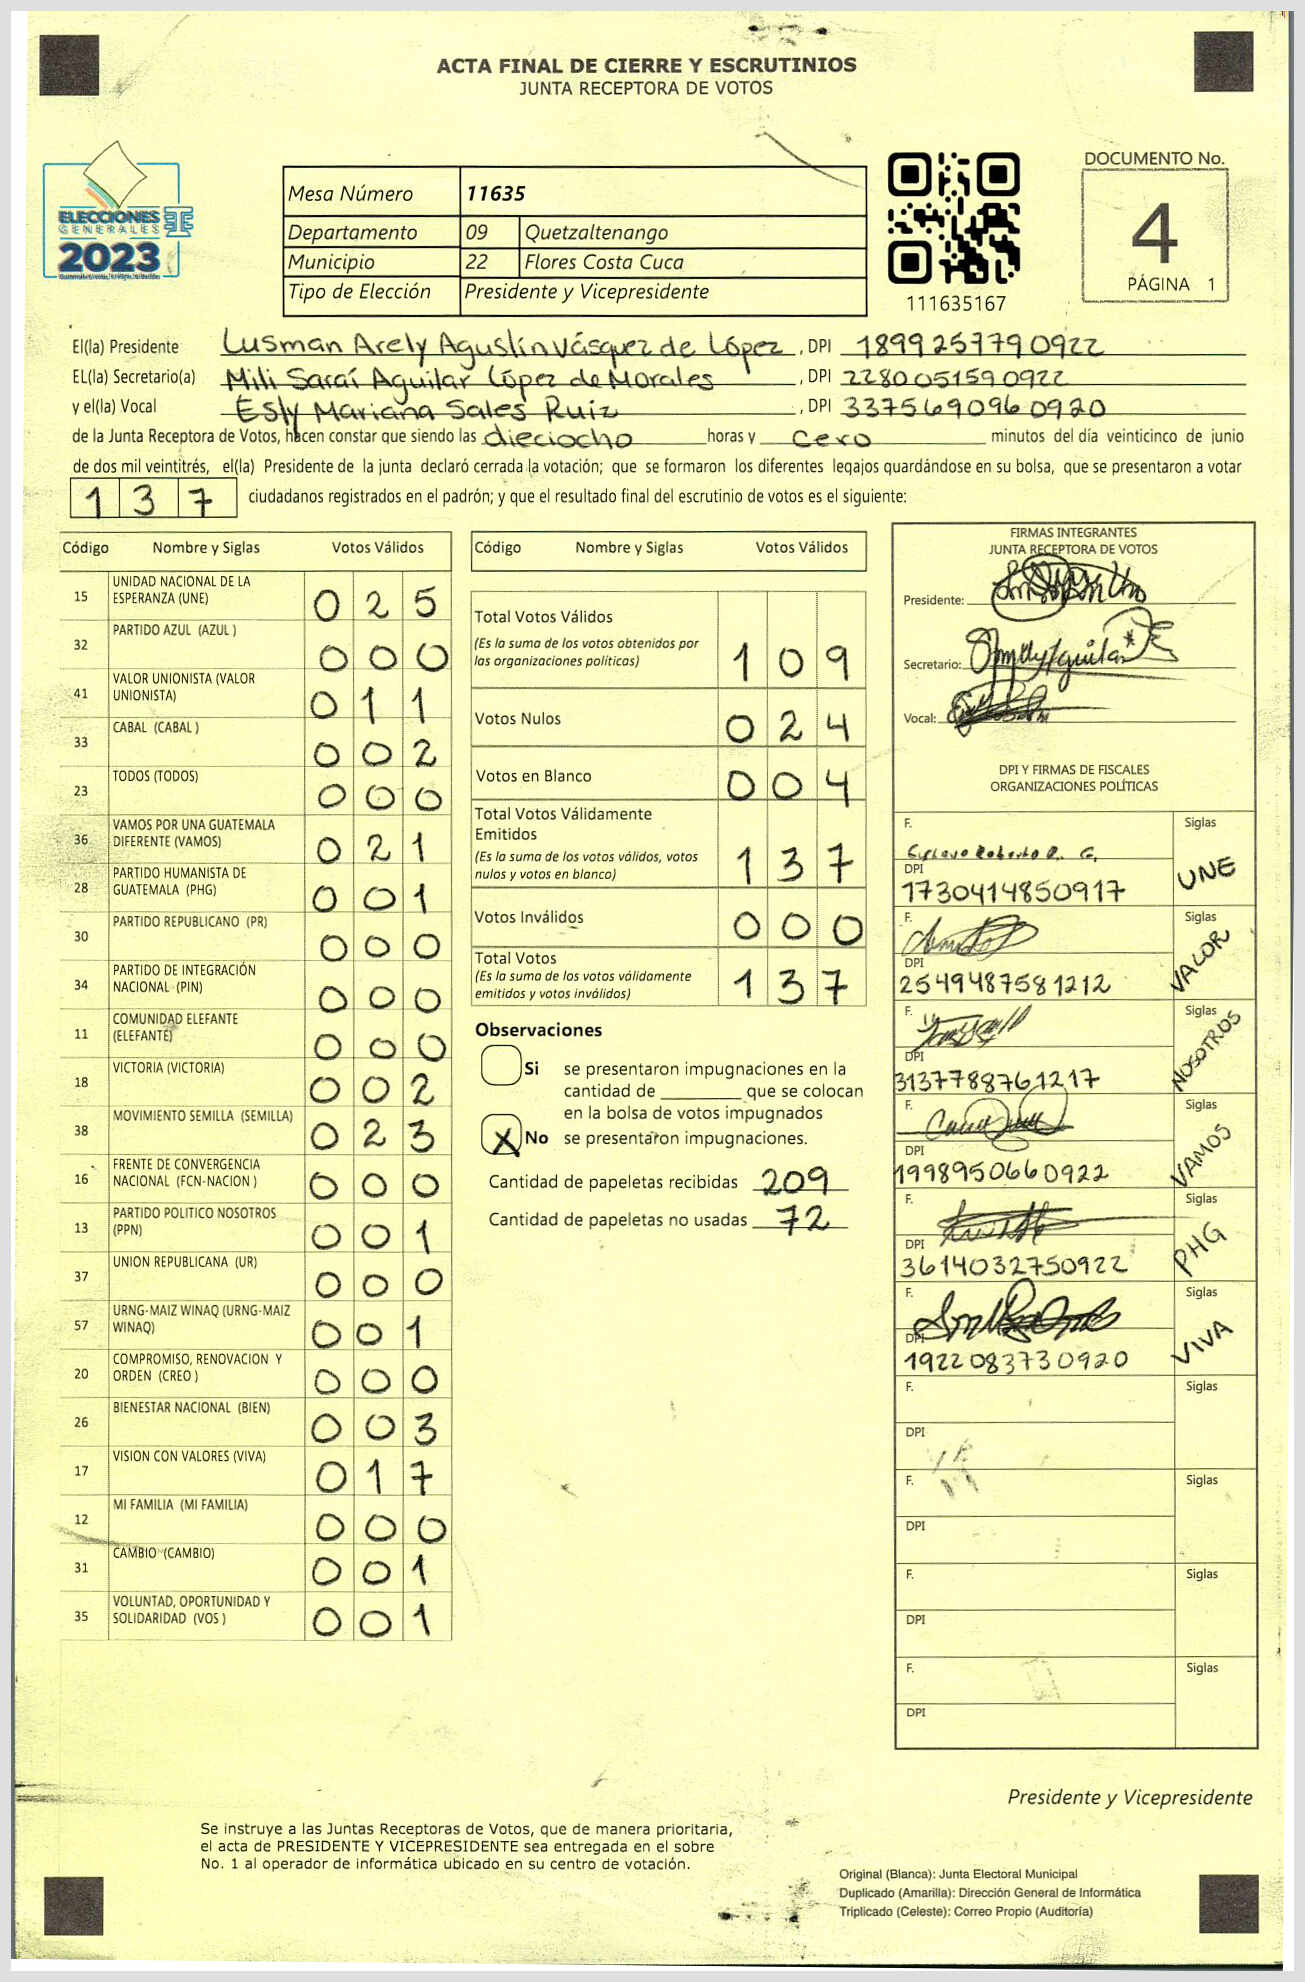 ACTA FINAL DE CIERRE Y ESCRUTINIOS
JUNTA RECEPTORA DE VOTOS
ELECCIONES
GENERALES
2023
Mesa Número 11635
Departamento 09 Quetzaltenango
Municipio 22 Flores Costa Cuca
Tipo de Elección Presidente y Vicepresidente
111635167
DOCUMENTO No.
4
PÁGINA 1
El(la) Presidente Lusman Arely Agustín Vásquez de López, DPI 1899257790922
EL(la) Secretario(a) Mili Saraí Aguilar López de Morales, DPI 2280051590922
y el(la) Vocal Esly Mariana Sales Ruiz, DPI 3375690960920
de la Junta Receptora de Votos, hacen constar que siendo las dieciocho horas y cero minutos del día veinticinco de junio
de dos mil veintitrés, el(la) Presidente de la junta declaró cerrada la votación; que se formaron los diferentes legajos guardándose en su bolsa, que se presentaron a votar
137 ciudadanos registrados en el padrón; y que el resultado final del escrutinio de votos es el siguiente:
Código Nombre y Siglas Votos Válidos
15 UNIDAD NACIONAL DE LA ESPERANZA (UNE) 025
32 PARTIDO AZUL (AZUL ) 000
41 VALOR UNIONISTA (VALOR UNIONISTA) 011
33 CABAL (CABAL ) 002
23 TODOS (TODOS) 000
36 VAMOS POR UNA GUATEMALA DIFERENTE (VAMOS) 021
28 PARTIDO HUMANISTA DE GUATEMALA (PHG) 001
30 PARTIDO REPUBLICANO (PR) 000
34 PARTIDO DE INTEGRACIÓN NACIONAL (PIN) 000
11 COMUNIDAD ELEFANTE (ELEFANTE) 000
18 VICTORIA (VICTORIA) 002
38 MOVIMIENTO SEMILLA (SEMILLA) 023
16 FRENTE DE CONVERGENCIA NACIONAL (FCN-NACION ) 000
13 PARTIDO POLITICO NOSOTROS (PPN) 001
37 UNION REPUBLICANA (UR) 000
57 URNG-MAIZ WINAQ (URNG-MAIZ WINAQ) 001
20 COMPROMISO, RENOVACION Y ORDEN (CREO ) 000
26 BIENESTAR NACIONAL (BIEN) 003
17 VISION CON VALORES (VIVA) 017
12 MI FAMILIA (MI FAMILIA) 000
31 CAMBIO (CAMBIO) 001
35 VOLUNTAD, OPORTUNIDAD Y SOLIDARIDAD (VOS ) 001
Código Nombre y Siglas Votos Válidos
Total Votos Válidos
(Es la suma de los votos obtenidos por las organizaciones políticas) 109
Votos Nulos 024
Votos en Blanco 004
Total Votos Válidamente Emitidos
(Es la suma de los votos válidos, votos nulos y votos en blanco) 137
Votos Inválidos 000
Total Votos
(Es la suma de los votos válidamente emitidos y votos inválidos) 137
Observaciones
Si se presentaron impugnaciones en la
cantidad de ________ que se colocan
en la bolsa de votos impugnados
X No se presentaron impugnaciones.
Cantidad de papeletas recibidas 209
Cantidad de papeletas no usadas 72
FIRMAS INTEGRANTES
JUNTA RECEPTORA DE VOTOS
Presidente:
Secretario:
Vocal:
DPI Y FIRMAS DE FISCALES
ORGANIZACIONES POLÍTICAS
F. Siglas
DPI 1730414850917 UNE
F. Siglas
DPI 2549487581212 VALOR
F. Siglas
DPI 3137788761217 NOSOTROS
F. Siglas
DPI 1998950660922 VAMOS
F. Siglas
DPI 3614032750922 PHG
F. Siglas
DPI 1922083730920 VIVA
F. Siglas
DPI
F. Siglas
DPI
F. Siglas
DPI
F. Siglas
DPI
Presidente y Vicepresidente
Se instruye a las Juntas Receptoras de Votos, que de manera prioritaria,
el acta de PRESIDENTE Y VICEPRESIDENTE sea entregada en el sobre
No. 1 al operador de informática ubicado en su centro de votación.
Original (Blanca): Junta Electoral Municipal
Duplicado (Amarilla): Dirección General de Informática
Triplicado (Celeste): Correo Propio (Auditoría)